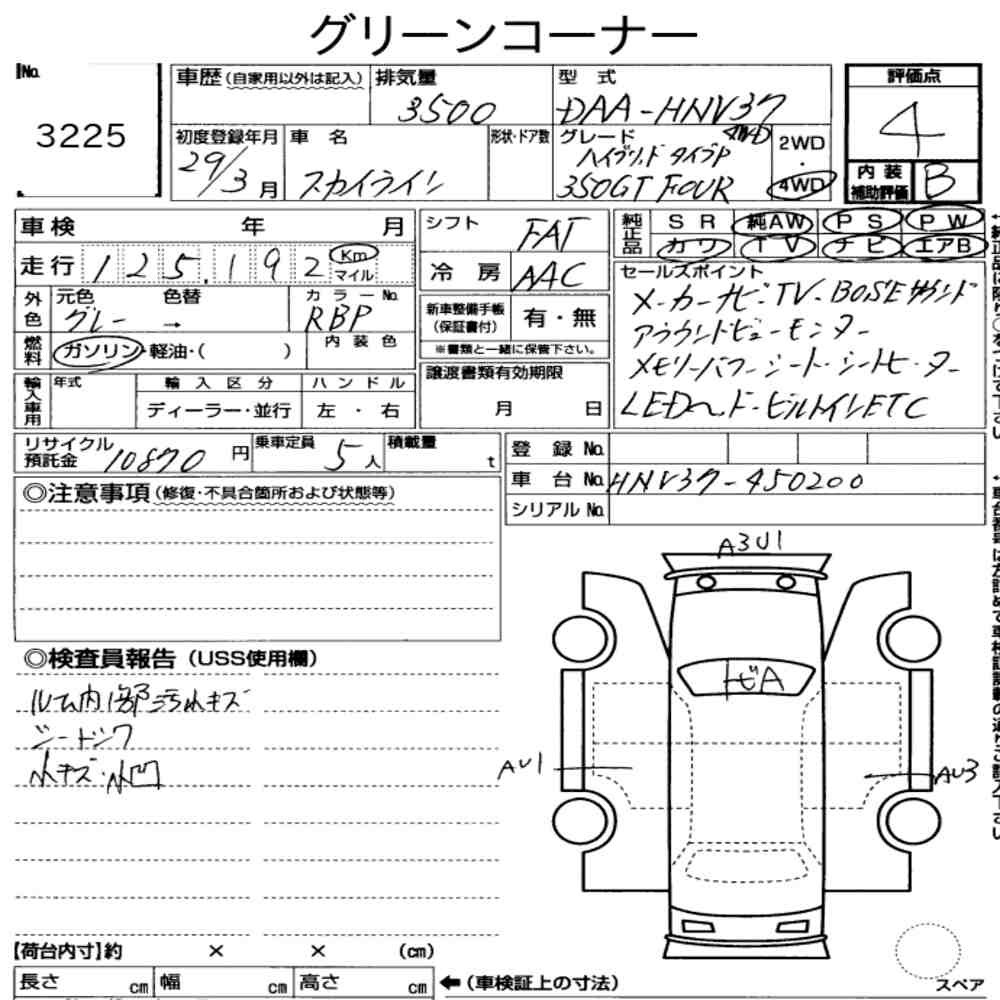 グリーンコーナー
No.
3225
車歴(自家用以外は記入)
排気量
3500
型式
DAA-HNV37
評価点
4
初度登録年月
29/3月
車名
スカイライン
形状・ドア数
グレード
4WD
ハイブリッド タイプP
350GT FOUR
2WD
・
4WD
内装
補助評価
B
車検 年 月
走行 125,192 Km
マイル
シフト
FAT
冷房
AAC
純正品
SR 純AW PS PW
カワ TV ナビ エアB
外色
元色 色替
グレー →
カラーNo.
RBP
新車整備手帳
(保証書付)
有・無
※書類と一緒に保管下さい。
燃料
ガソリン・軽油・( )
内装色
セールスポイント
メーカーナビ・TV・BOSEサウンド
アラウンドビューモニター
メモリーパワーシート・シートヒーター
LEDヘッド・ビルトインETC
輸入車用
年式
輸入区分
ハンドル
ディーラー・並行
左・右
譲渡書類有効期限
月 日
リサイクル
預託金
10870円
乗車定員
5人
積載量
t
登録No.
車台No.
HNV37-450200
シリアルNo.
◎注意事項(修復・不具合箇所および状態等)
◎検査員報告(USS使用欄)
ルーム内1部汚れキズ
シートシワ
小キズ・小凹
A3U1
トビA
AU1
AU3
【荷台内寸】約 × × (cm)
長さ cm
幅 cm
高さ cm
←(車検証上の寸法)
スペア